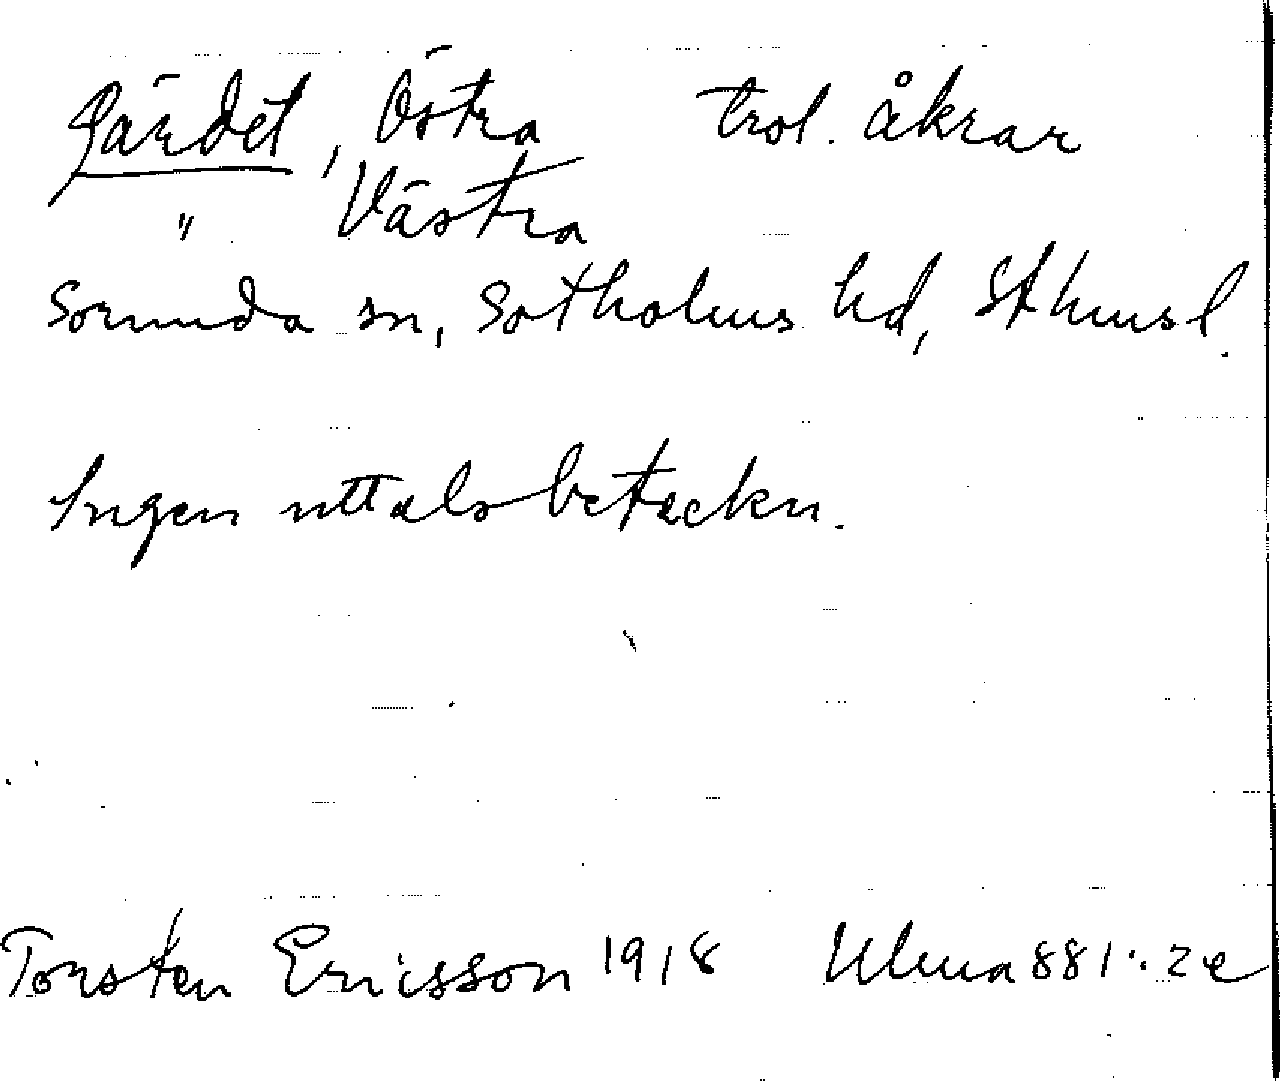 Gärdet, Östra trol. åkrar
" Västra
Sorunda sn, Sotholms hd, Sthmsl.
Ingen uttalsbeteckn.
Torsten Ericsson 1918 Ulma 881:2e